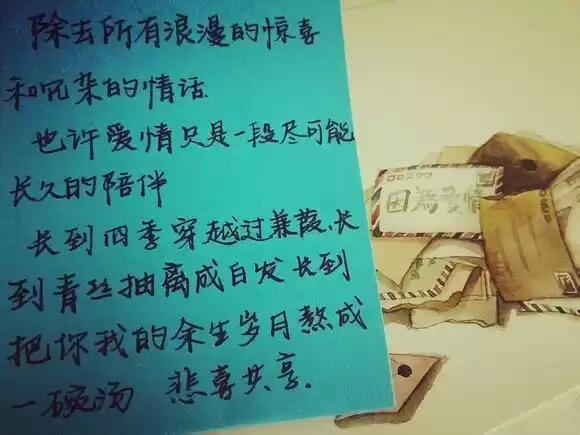 除去所有浪漫的惊喜
和冗杂的情话
也许爱情只是一段尽可能
长久的陪伴
长到四季穿越过蒹葭、长
到青丝抽离成白发长到
把你我的余生岁月熬成
一碗汤 悲喜共享.
因為愛情